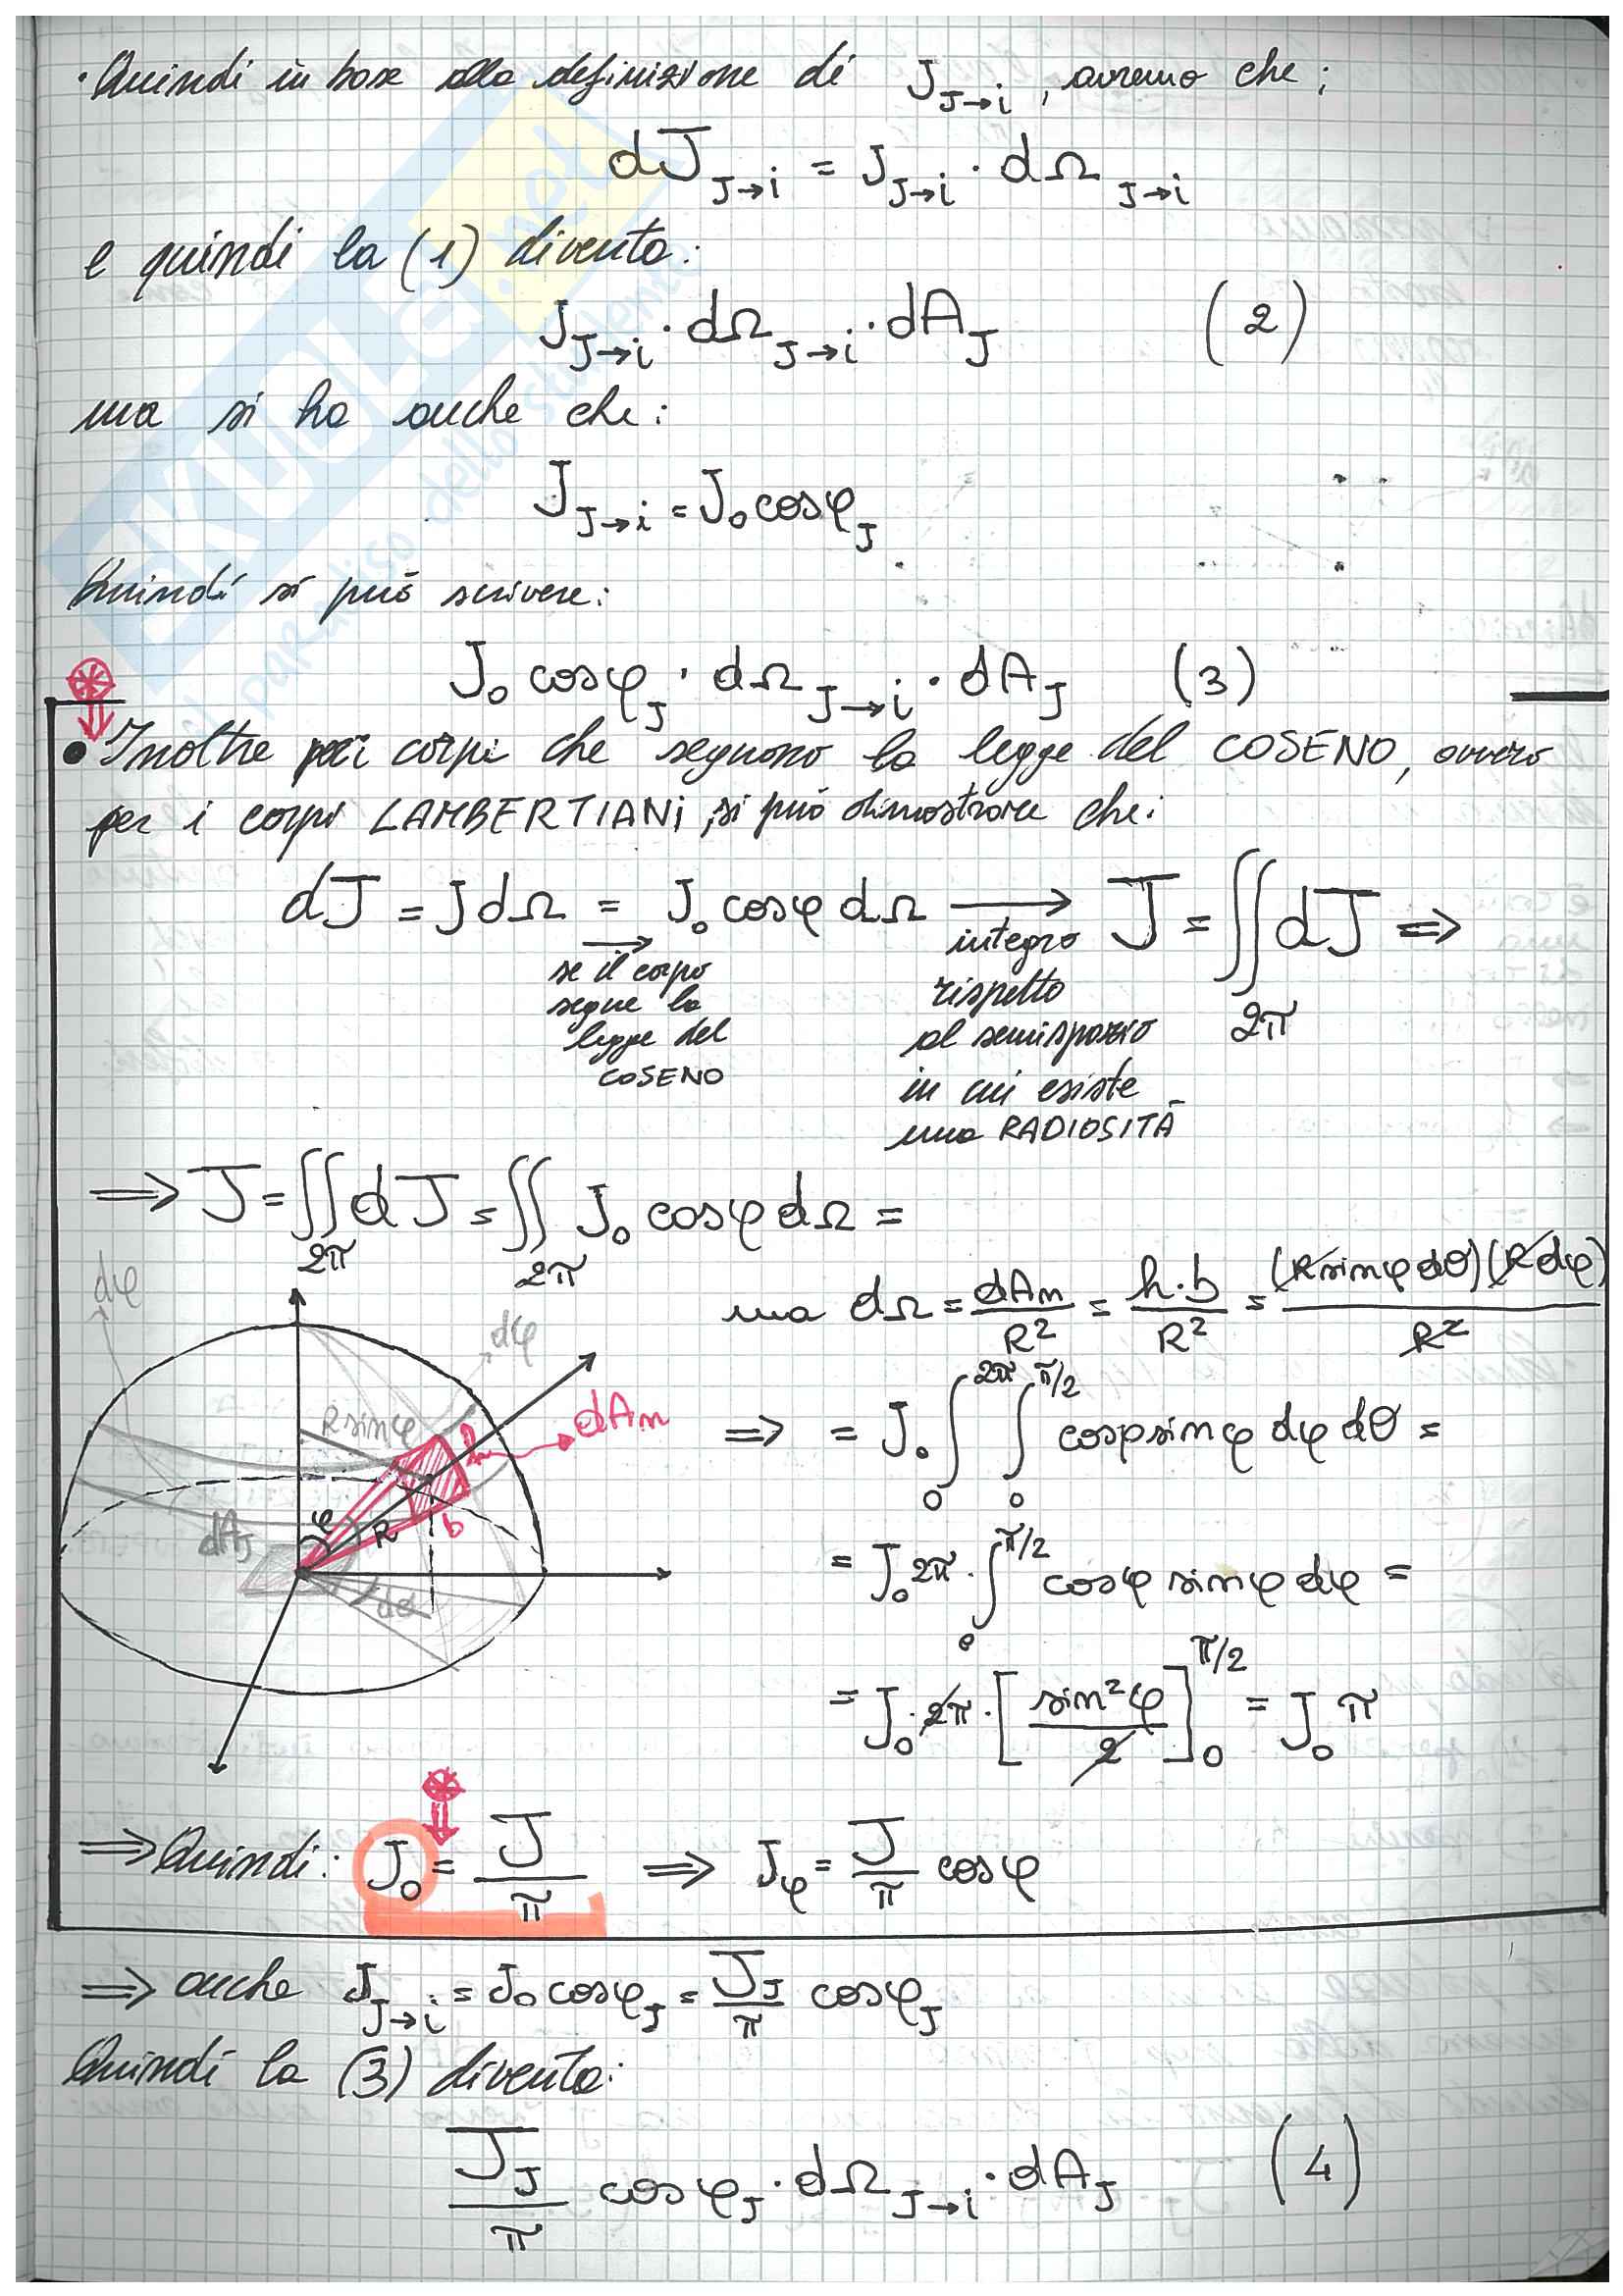 • Quindi in base alla definizione di J_J→i, avremo che:
dJ_J→i = J_J→i · dΩ_J→i
e quindi la (1) diventa:
J_J→i · dΩ_J→i · dA_J (2)
ma si ha anche che:
J_J→i = J_0 cosφ_J
Quindi si può scrivere:
J_0 cosφ_J · dΩ_J→i · dA_J (3)
• Inoltre per i corpi che seguono la legge del COSENO, ovvero
per i corpi LAMBERTIANI, si può dimostrare che:
dJ = J dΩ = J_0 cosφ dΩ → J = ∬ dJ ⇒
2π
se il corpo
segue la
legge del
COSENO
integro
rispetto
al semispazio
in cui esiste
una RADIOSITÀ
⇒ J = ∬ dJ = ∬ J_0 cosφ dΩ =
2π 2π
ma dΩ = dA_n/R² = h·b/R² = (R sinφ dθ)(R dφ)/R²
dφ
dφ
R sinφ
h
dA_n
b
R
φ
dA_J
dθ
⇒ = J_0 ∫_0^2π ∫_0^π/2 cosφ sinφ dφ dθ =
= J_0 2π · ∫_0^π/2 cosφ sinφ dφ =
= J_0 · 2π · [sin²φ/2]_0^π/2 = J_0 π
⇒ Quindi: J_0 = J/π ⇒ J_φ = J/π cosφ
⇒ anche J_J→i = J_0 cosφ_J = J_J/π cosφ_J
Quindi la (3) diventa:
J_J/π cosφ_J · dΩ_J→i · dA_J (4)
SKUOLA.net
il paradiso dello studente